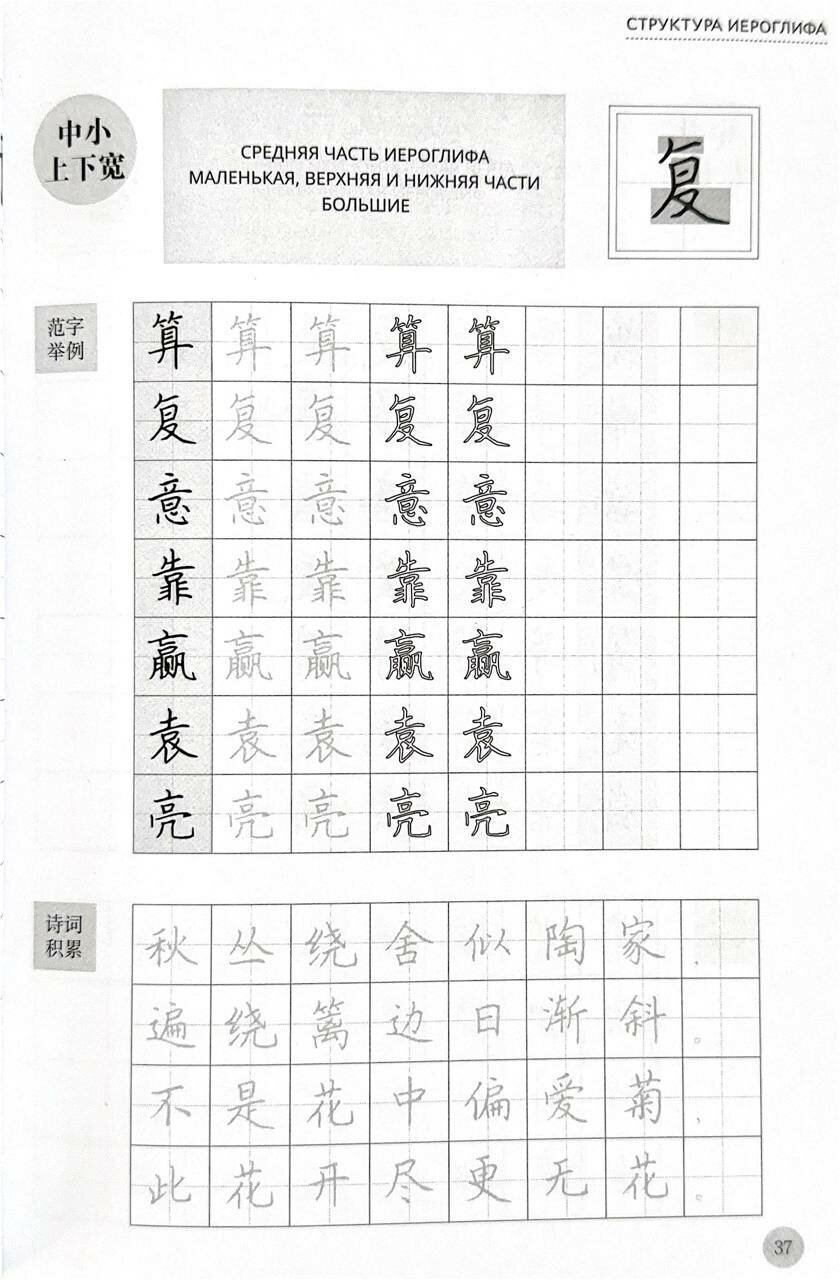 СТРУКТУРА ИЕРОГЛИФА
中小
上下宽
СРЕДНЯЯ ЧАСТЬ ИЕРОГЛИФА
МАЛЕНЬКАЯ, ВЕРХНЯЯ И НИЖНЯЯ ЧАСТИ
БОЛЬШИЕ
复
范字
举例
算 算 算 算 算
复 复 复 复 复
意 意 意 意 意
靠 靠 靠 靠 靠
赢 赢 赢 赢 赢
袁 袁 袁 袁 袁
亮 亮 亮 亮 亮
诗词
积累
秋丛绕舍似陶家,
遍绕篱边日渐斜。
不是花中偏爱菊,
此花开尽更无花。
37